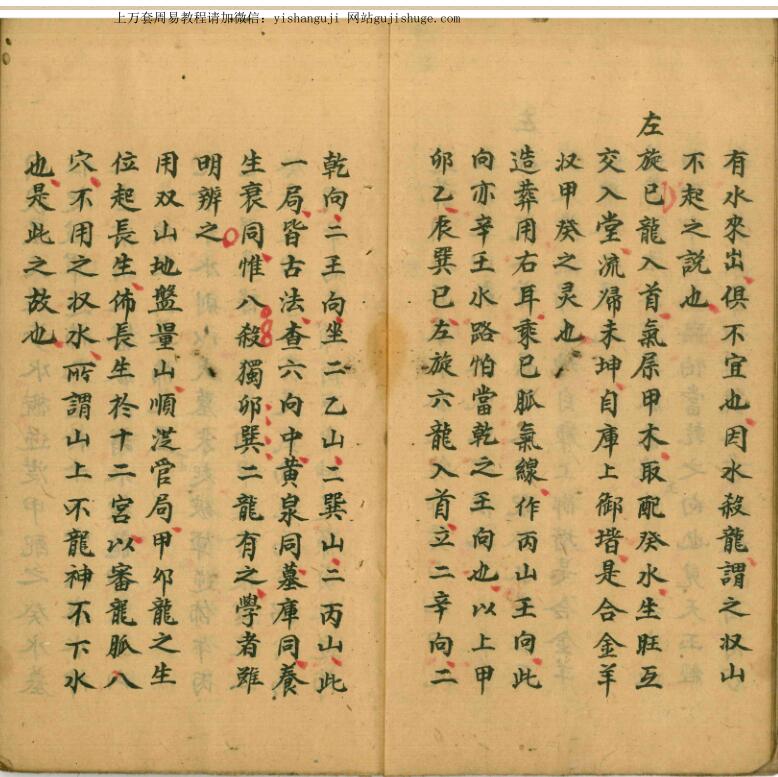 上万套周易教程请加微信：yishanguji 网站gujishuge.com
有水來出俱不宜也因水殺龍謂之収山
不起之說也
左旋巳龍入首氣屬甲木取配癸水生旺互
交入堂流歸未坤自庫上御堦是合金羊
汉甲癸之灵也
造葬用右耳乘巳脈氣線作丙山壬向此
向亦辛壬水路怕當乾之王向也以上甲
卯乙辰巽巳左旋六龍入首立二辛向二
乾向二王向坐二乙山二巽山二丙山此
一局皆古法查六向中黄泉同墓庫同養
生衰同惟八殺獨卯巽二龍有之學者雖
明辨之
用双山地盤量山順逆官局甲卯龍之生
位起長生佈長生於十二宮以審龍脈八
穴不用之収水所謂山上不龍神不下水
也是此之故也